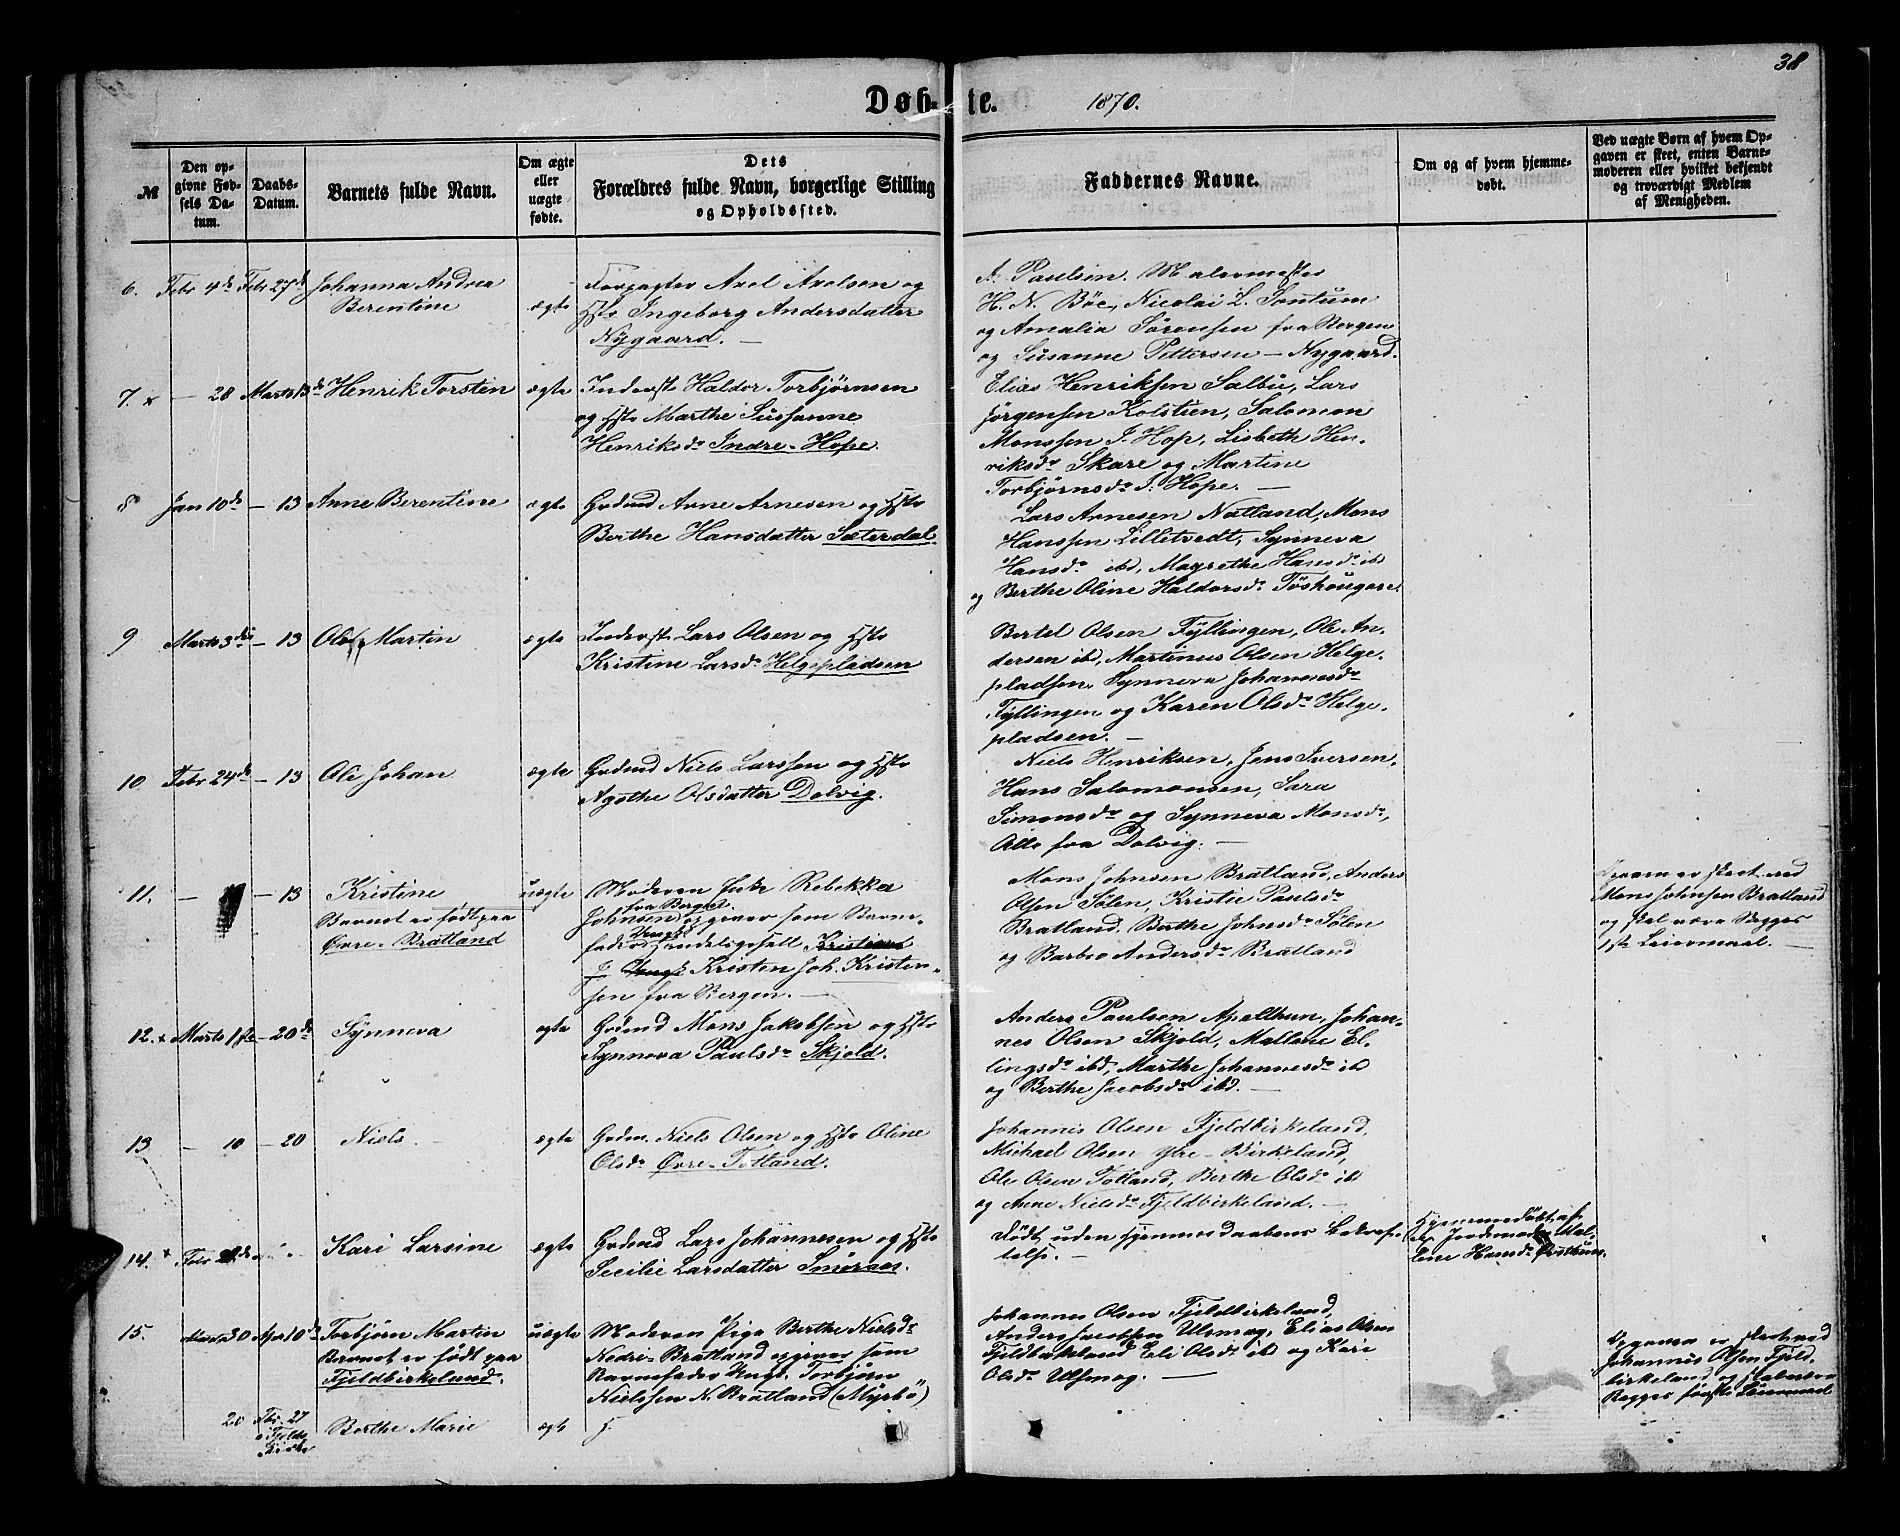 38
Døb-te. 1870.
№
Den op-
givne Fød-
sels Da-
tum.
Daabs-
Datum.
Barnets fulde Navn.
Om ægte
eller
uægte
fødte.
Dets
Forældres fulde Navn, borgerlige Stilling
og Opholdssted.
Faddernes Navne.
Om og af hvem hjemme-
døbt.
Ved uægte Børn af hvem Op-
gaven er skeet, enten Barne-
moderen eller hvilket bekjendt
og troværdigt Medlem
af Menigheden.
6. Febr 4de Febr 27de Johanna Andrea
Berentine
ægte
Forpagter Axel Axelsen og
Hstr Ingeborg Andersdatter
Nygaard. —
A. Paulsen. Malermester
H. N. Böe, Nicolai L. Sontum
og Amalia Sörensen fra Bergen
og Susanne Pettersen – Nygaard.
7. x — 28 Marts 13de Henrik Torsten
ægte
Inderst Haldor Torbjörnsen
og Hstr Marthe Sussanne
Henriksdr Indre-Hope.
Elias Henriksen Salbu, Lars
Jörgensen Kolstien, Salomon
Monssen I. Hop, Lisbeth Hen-
riksdr Skare og Martine
Torbjörnsdr I. Hope. —
8 Jan 10de — 13 Anne Berentine
ægte
Grdmd Arne Arnesen og Hstr
Berthe Hansdatter Sæterdal.
Lars Arnesen Natland, Mons
Hanssen Lilletvedt, Synneva
Hansdr ibd, Magrethe Hansdr ibd
og Berthe Oline Haldorsdr
9 Marts 3die — 13 Ole Martin
ægte
Inderst Lars Olsen og Hstr
Kristine Larsdr Helgepladsen
Bertel Olsen Fyllingen, Ole An-
dersen ibd, Martinus Olsen Helge-
pladsen, Synneva Johannesdr
Fyllingen og Karen Olsdr Helge-
pladsen. —
10. Febr 24de — 13 Ole Johan
ægte
Grdmd Niels Larssen og Hstr
Agathe Olsdatter Dolvig.
Niels Henriksen, Jens Iversen,
Hans Salomonsen, Sara
Simonsdr og Synneva Monsdr,
Alle fra Dolvig. —
11. — — 13 Kristine
Barnet er födt paa
Övre-Bratland
uægte
Moderen Rebekka
fra Bergen
Johnsen opgiver som Barne-
fader Ungkl
Kristen Joh. Kristen-
sen fra Bergen. —
Mons Johnsen Bratland, Anders
Olsen Sölen, Kristie Paulsdr
Bratland, Berthe Johnsdr Sölen
og Barbro Andersdr Bratland
Opgaven er skeet ved
Mons Johnsen Bratland
og skal være Begges
1ste Leiermaal. —
12. x Marts 1ste — 20de Synneva
ægte
Grdmd Mons Jakobsen og Hstr
Synneva Paulsdr Skjold.
Anders Paulsen Apelthun, Johan-
nes Olsen Skjold, Mallene El-
lingsdr ibd, Marthe Johannesdr ibd
og Berthe Jacobsdr ibd. —
13 — 10 — 20 Niels.
ægte
Grdm. Niels Olsen og Hstr Oline
Olsdr Övre-Totland.
Johannes Olsen Fjeldbirkeland,
Michael Olsen Ytre-Birkeland,
Ole Olsen Totland, Berthe Olsdr ibd
og Anne Nielsdr Fjeldbirkeland. —
14. x Febr Kari Larsine
ægte
Grdmd Lars Johannesen og Hstr
Secilie Larsdatter Smöraas.
Födt uden Hjemmedaabens bekræf-
telse. —
Hjemmedöbt af
Jordemoder Mal-
lene Hansdr
15. Marts 30 Apr 10de Torbjørn Martin
Barnet er födt paa
Fjeldbirkeland.
uægte
Moderen Pige Berthe Nielsdr
Nedre-Bratland opgiver som
Barnefader Ungk. Torbjørn
Nielssen N. Bratland (Myrbö)
Johannes Olsen Fjeldbirkeland,
Anders Jacobsen Ulsmog, Elias Olsen
Fjeldbirkeland Eli Olsdr ibd og Kari
Olsdr Ulsmog. —
Opgaven er skeet ved
Johannes Olsen Fjeld-
birkeland og skal være
Begges förste Leiermaal
20 Febr. 27
i Fjelds
Kirke
Berthe Marie
ægte